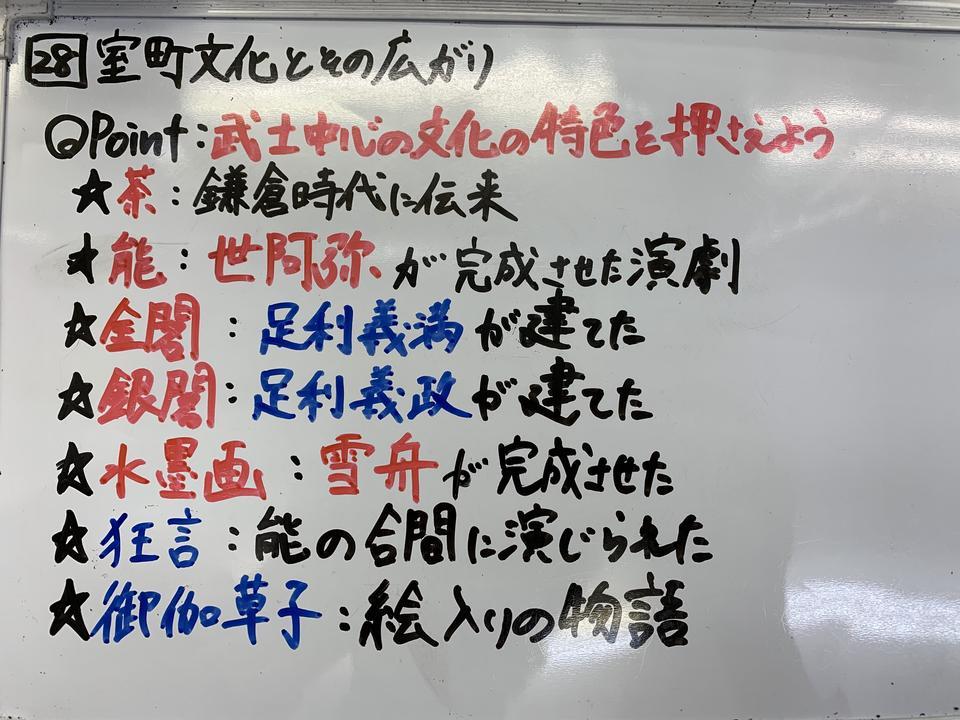 28 室町文化とその広がり
◎Point:武士中心の文化の特色を押さえよう
☆茶:鎌倉時代に伝来
★能:世阿弥が完成させた演劇
☆金閣:足利義満が建てた
☆銀閣:足利義政が建てた
☆水墨画:雪舟が完成させた
☆狂言:能の合間に演じられた
☆御伽草子:絵入りの物語